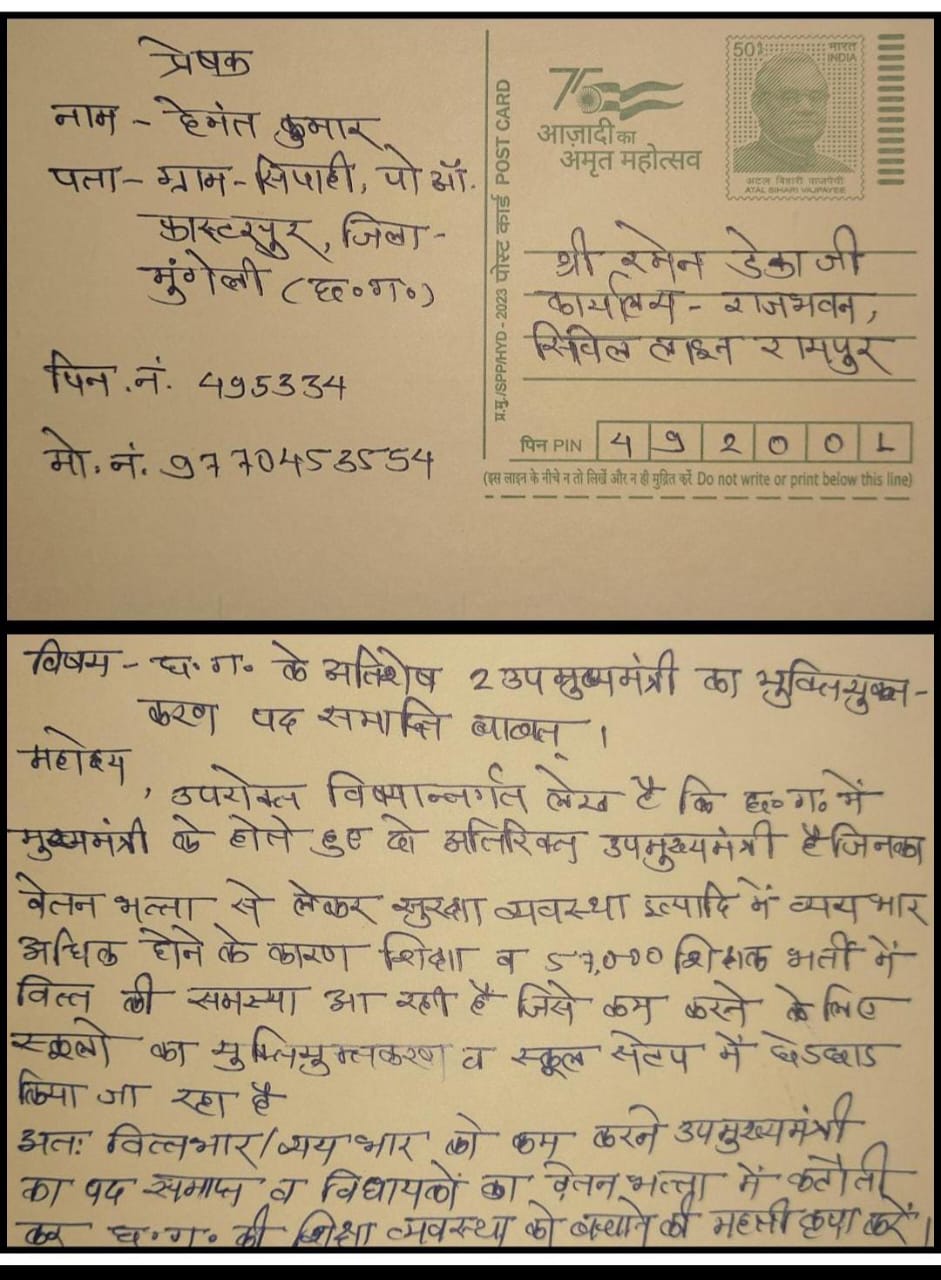 प्रेषक
नाम - हेमंत कुमार
पता - ग्राम - सिपाही, पो ऑ.
फास्टरपुर, जिला -
मुंगेली (छ०ग०)
पिन.नं. 495334
मो. नं. 9770453554
प्र.मु./SPP/HYD - 2023 पोस्ट कार्ड POST CARD
75
आज़ादी का
अमृत महोत्सव
50
भारत
INDIA
अटल बिहारी वाजपेयी
ATAL BIHARI VAJPAYEE
श्री रमेन डेका जी
कार्यालय - राजभवन,
सिविल लाइन रायपुर
पिन PIN 4 9 2 0 0 1
(इस लाइन के नीचे न तो लिखें और न ही मुद्रित करें Do not write or print below this line)
विषय - छ.ग. के अतिशेष 2 उपमुख्यमंत्री का युक्तियुक्त-
करण पद समाप्ति बाबत् ।
महोदय,
उपरोक्त विषयान्तर्गत लेख है कि छ०ग० में
मुख्यमंत्री के होते हुए दो अतिरिक्त उपमुख्यमंत्री है जिनका
वेतन भत्ता से लेकर सुरक्षा व्यवस्था इत्यादि में व्यय भार
अधिक होने के कारण शिक्षा व 57,000 शिक्षक भर्ती में
वित्त की समस्या आ रही है जिसे कम करने के लिए
स्कूलो का युक्तियुक्तकरण व स्कूल सेटप में छेडछाड
किया जा रहा है
अतः वित्तभार/व्यय भार को कम करने उपमुख्यमंत्री
का पद समाप्त व विधायकों का वेतन भत्ता में कटौती
कर छ.ग. की शिक्षा व्यवस्था को बचाने की महती कृपा करें।